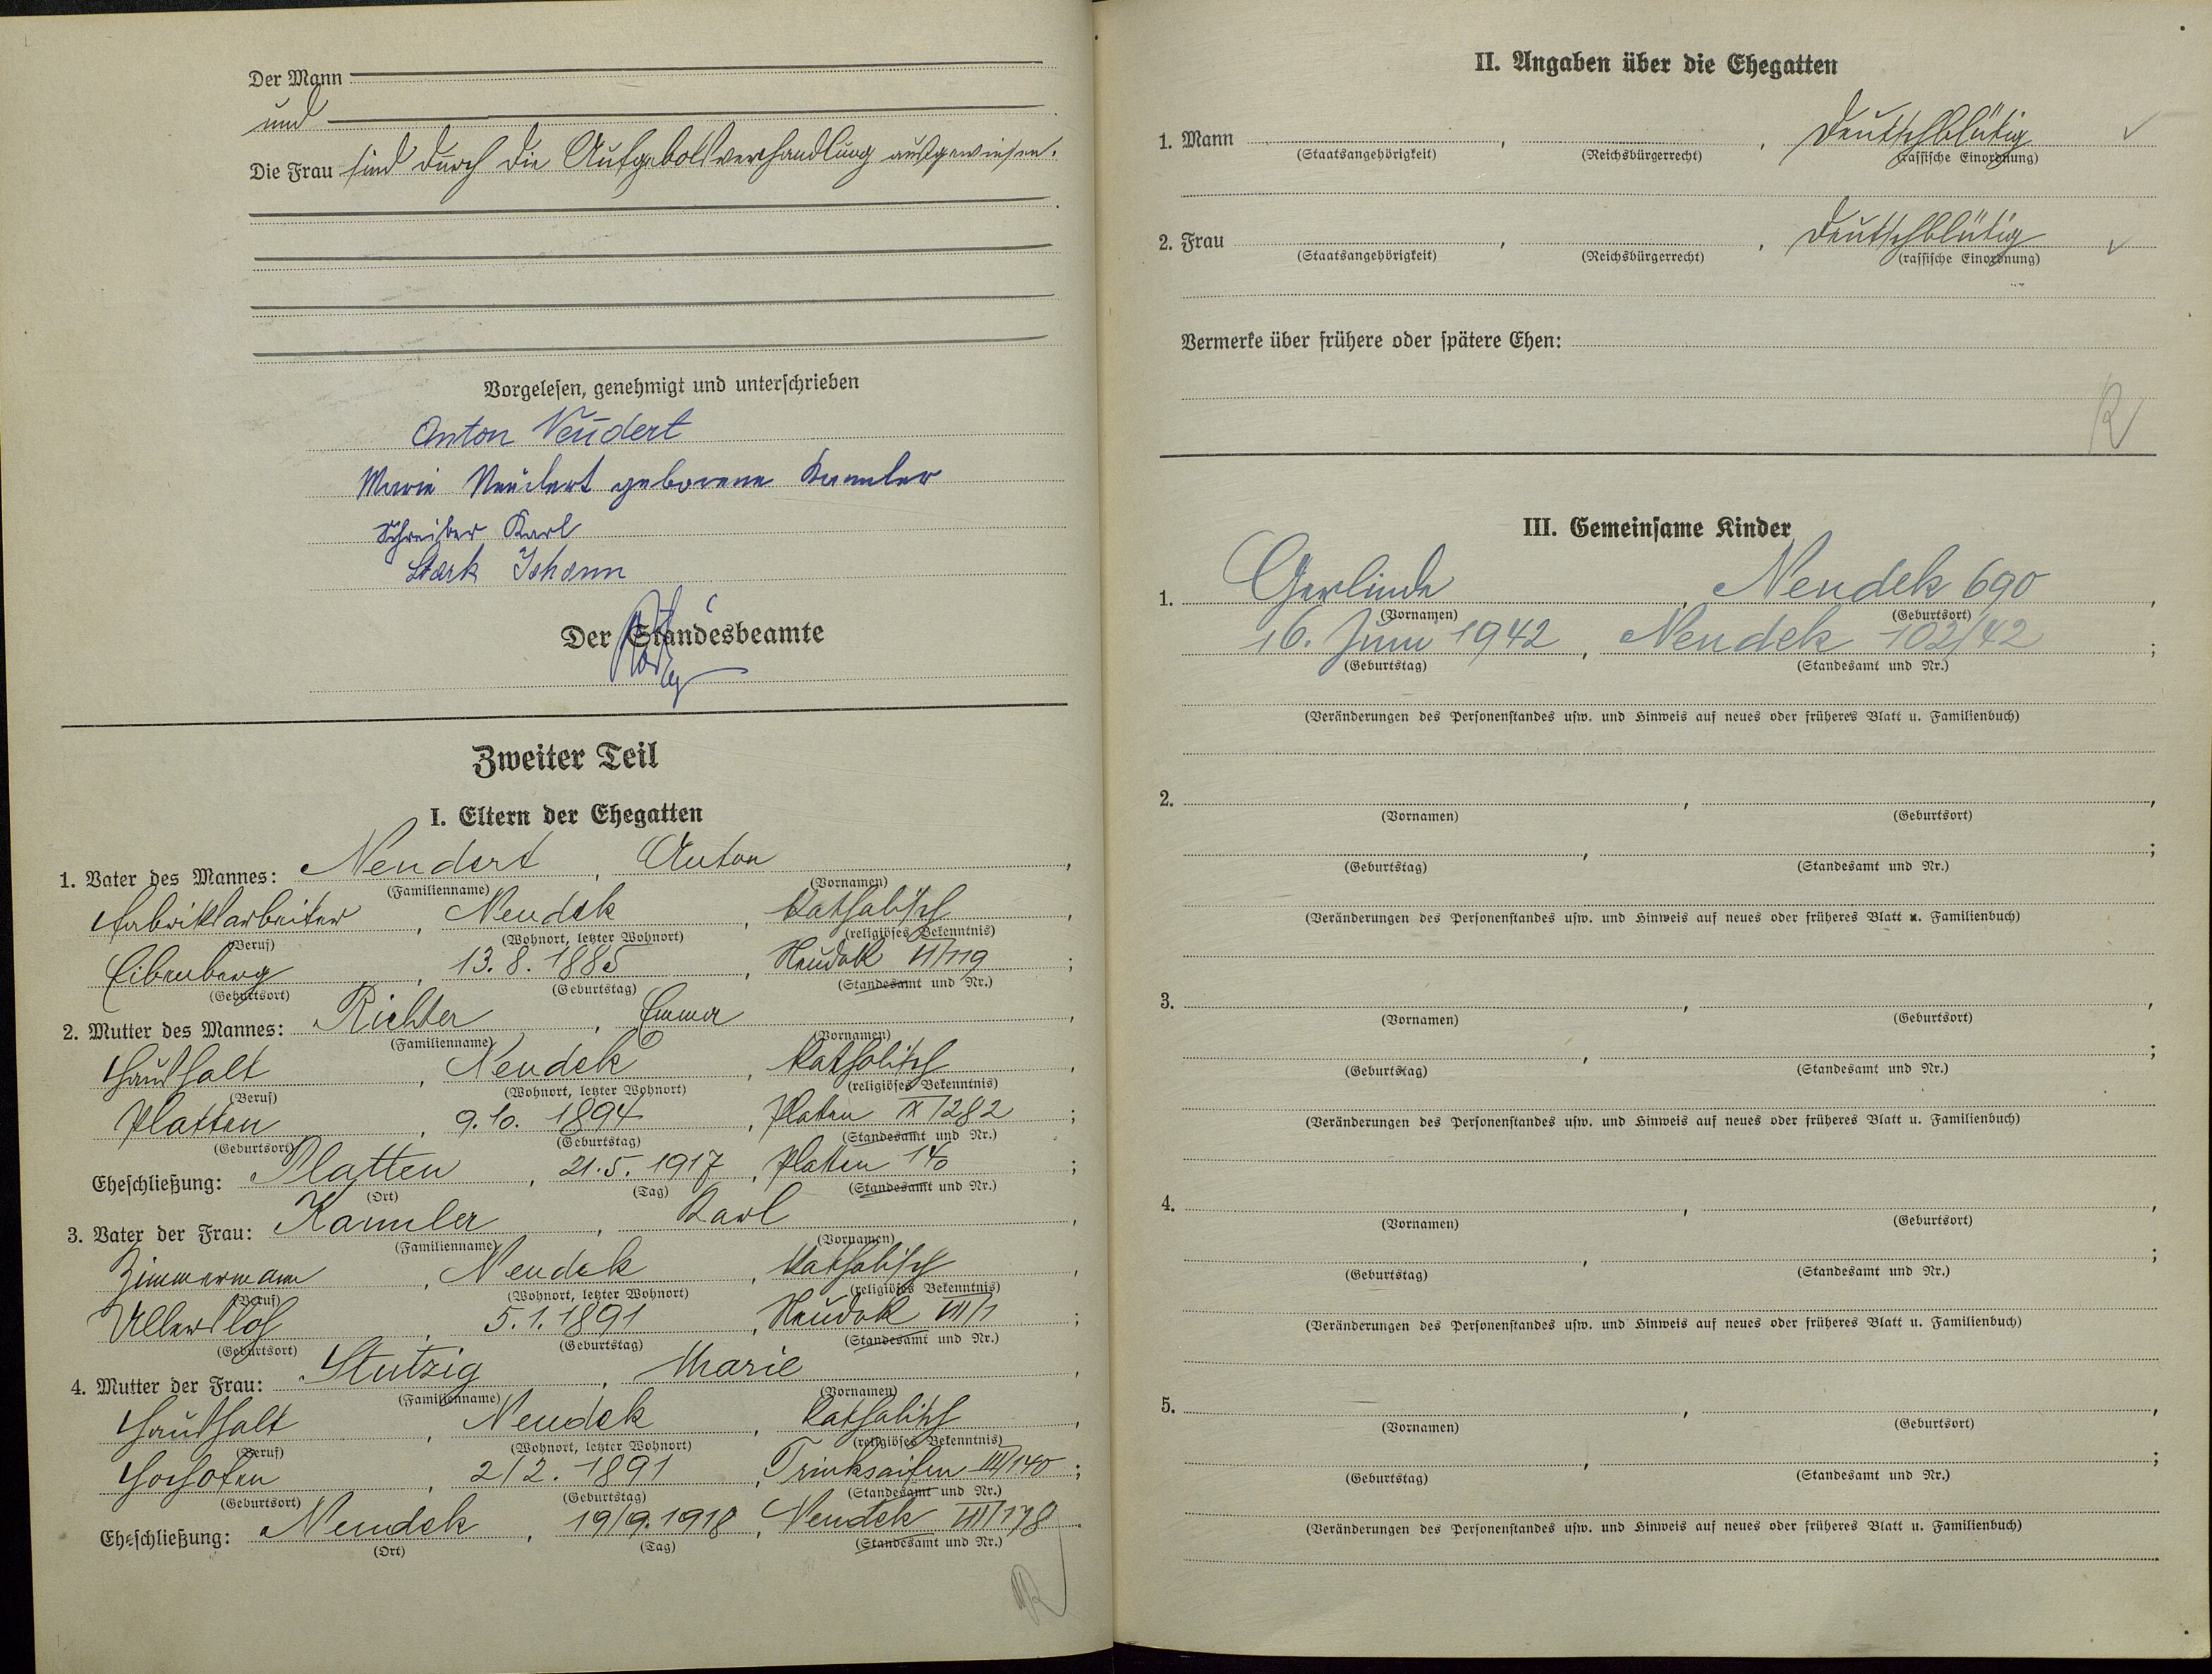 Der Mann
und
Die Frau sind durch die Aufgebotsverhandlung ausgewiesen.
Vorgelesen, genehmigt und unterschrieben
Anton Neudert
Marie Neudert geborene Kannler
Schreiber Karl
Stark Johann
Der Standesbeamte
Zweiter Teil
I. Eltern der Ehegatten
1. Vater des Mannes: Neudert, Anton,
(Familienname) (Vornamen)
Fabriksarbeiter, Neudek, katholisch,
(Beruf) (Wohnort, letzter Wohnort) (religiöses Bekenntnis)
Eibenberg, 13. 8. 1885, Neudek VI/119;
(Geburtsort) (Geburtstag) (Standesamt und Nr.)
2. Mutter des Mannes: Richter, Emma,
(Familienname) (Vornamen)
Haushalt, Neudek, katholisch,
(Beruf) (Wohnort, letzter Wohnort) (religiöses Bekenntnis)
Platten, 9. 10. 1894, Platten IX/282;
(Geburtsort) (Geburtstag) (Standesamt und Nr.)
Eheschließung: Platten, 21. 5. 1917, Platten;
(Ort) (Tag) (Standesamt und Nr.)
3. Vater der Frau: Kannler, Karl,
(Familienname) (Vornamen)
Zimmermann, Neudek, katholisch,
(Beruf) (Wohnort, letzter Wohnort) (religiöses Bekenntnis)
Ullersloh, 5. 1. 1891, Neudek VII/1;
(Geburtsort) (Geburtstag) (Standesamt und Nr.)
4. Mutter der Frau: Stutzig, Marie,
(Familienname) (Vornamen)
Haushalt, Neudek, katholisch,
(Beruf) (Wohnort, letzter Wohnort) (religiöses Bekenntnis)
Hochofen, 2/2. 1891, Trinksaifen III/140;
(Geburtsort) (Geburtstag) (Standesamt und Nr.)
Eheschließung: Neudek, 19/9. 1918, Neudek VII/178.
(Ort) (Tag) (Standesamt und Nr.)
R
II. Angaben über die Ehegatten
1. Mann , , Deutschblütig
(Staatsangehörigkeit) (Reichsbürgerrecht) (rassische Einordnung)
2. Frau , , Deutschblütig
(Staatsangehörigkeit) (Reichsbürgerrecht) (rassische Einordnung)
Vermerke über frühere oder spätere Ehen:
R
III. Gemeinsame Kinder
1. Gerlinde, Neudek 690,
(Vornamen) (Geburtsort)
16. Juni 1942, Neudek 102/42;
(Geburtstag) (Standesamt und Nr.)
(Veränderungen des Personenstandes usw. und Hinweis auf neues oder früheres Blatt u. Familienbuch)
2. , ,
(Vornamen) (Geburtsort)
, ;
(Geburtstag) (Standesamt und Nr.)
(Veränderungen des Personenstandes usw. und Hinweis auf neues oder früheres Blatt u. Familienbuch)
3. , ,
(Vornamen) (Geburtsort)
, ;
(Geburtstag) (Standesamt und Nr.)
(Veränderungen des Personenstandes usw. und Hinweis auf neues oder früheres Blatt u. Familienbuch)
4. , ,
(Vornamen) (Geburtsort)
, ;
(Geburtstag) (Standesamt und Nr.)
(Veränderungen des Personenstandes usw. und Hinweis auf neues oder früheres Blatt u. Familienbuch)
5. , ,
(Vornamen) (Geburtsort)
, ;
(Geburtstag) (Standesamt und Nr.)
(Veränderungen des Personenstandes usw. und Hinweis auf neues oder früheres Blatt u. Familienbuch)